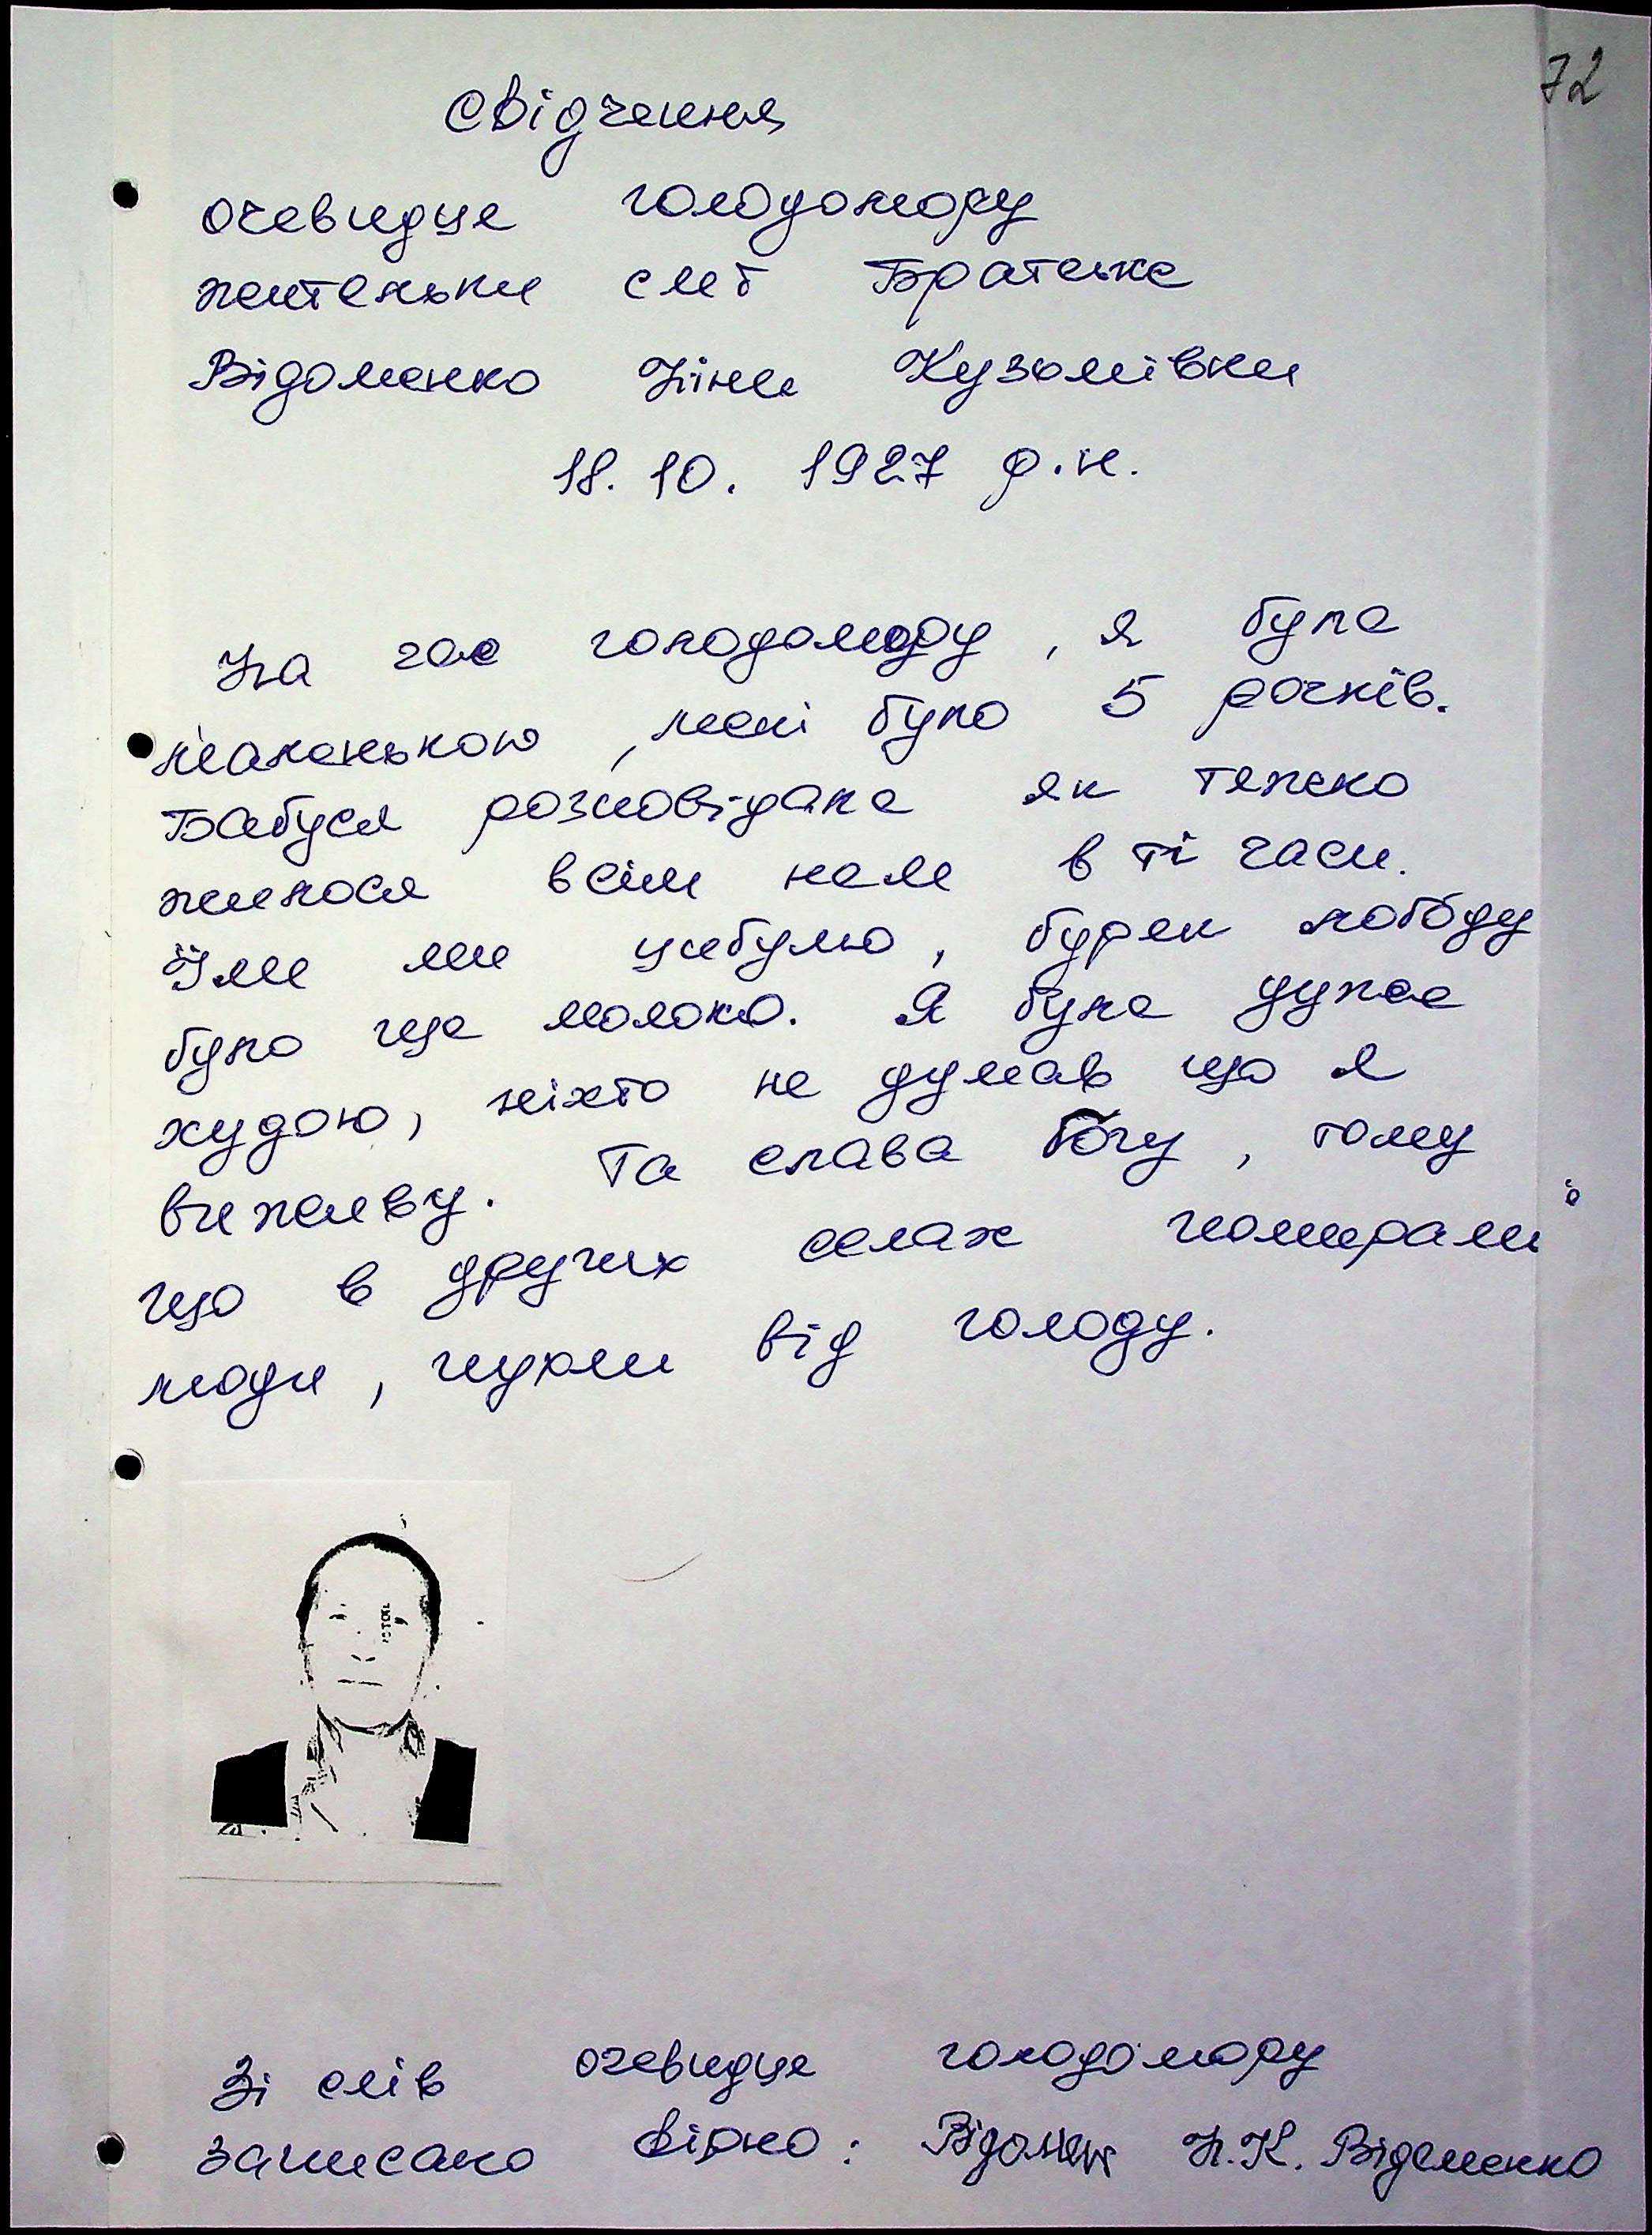 72
свідчення
очевидця голодомору
жительки смт Братське
Відоменко Ніни Кузьмівни
18. 10. 1927 р.н.
На час голодомору, я була
маленькою, мені було 5 рочків.
Бабуся розповідала як тяжко
жилося всім нам в ті часи.
Їли ми цибулю, буряк лободу
було ще молоко. Я була дуже
худою, ніхто не думав що я
виживу. Та слава Богу, тому
що в других селах помирали і
люди, пухли від голоду.
Зі слів очевидця голодомору
записано вірно: Н.К. Відоменко